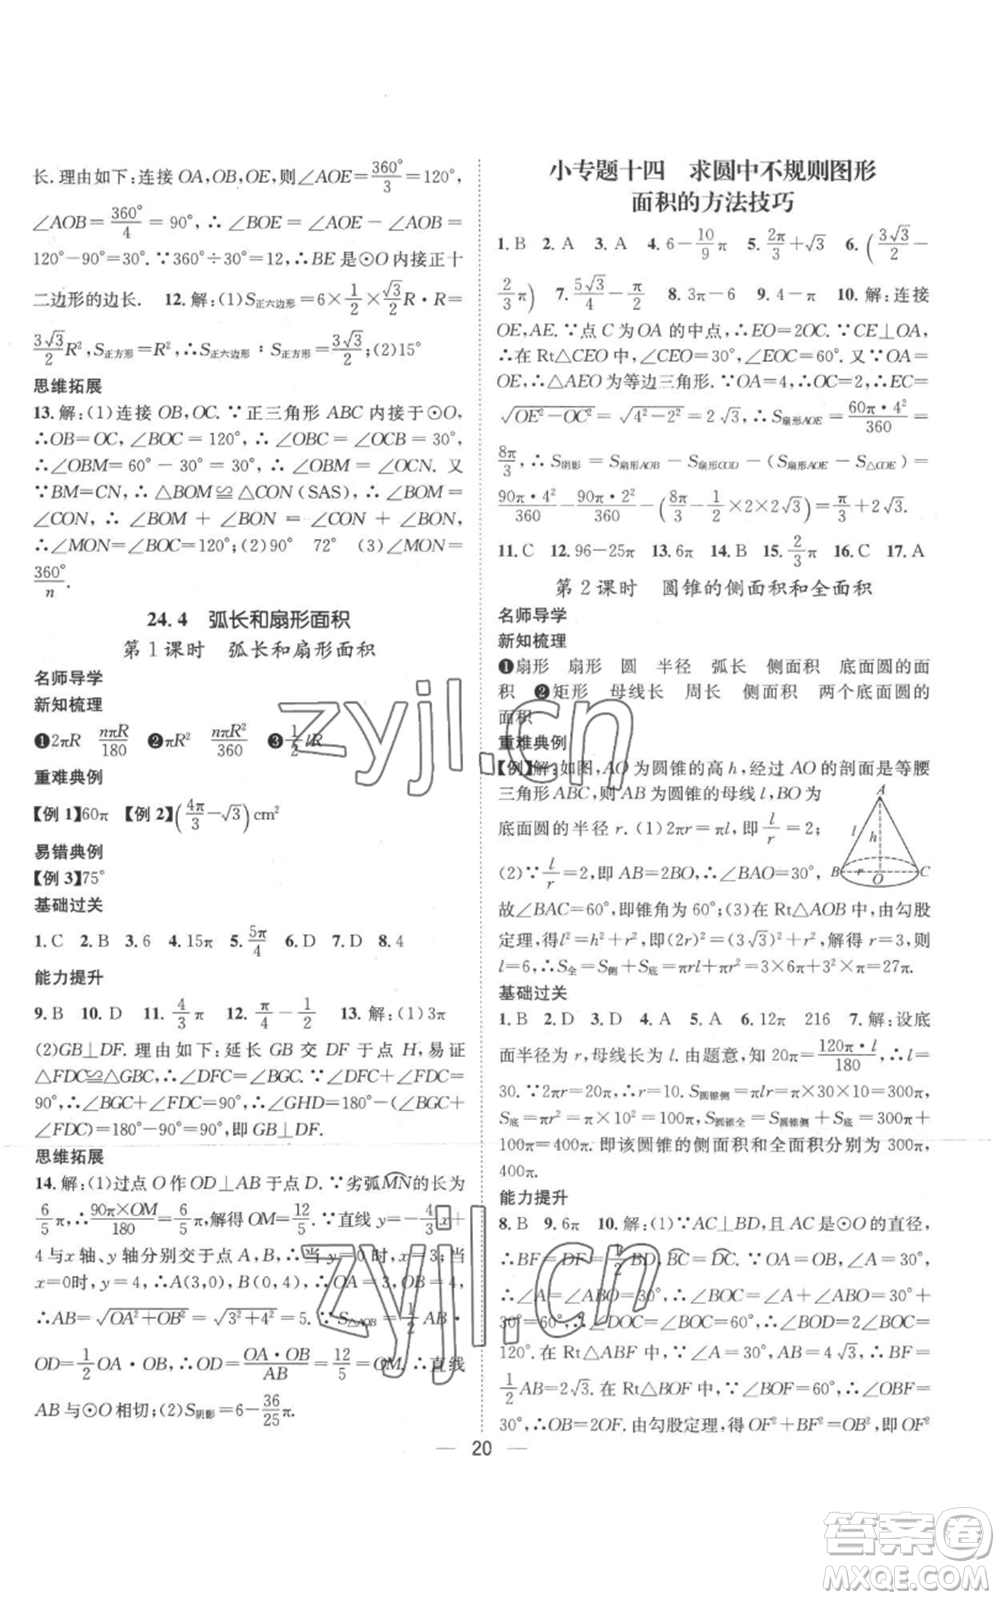 长.理由如下:连接OA,OB,OE,则∠AOE=360°/3=120°,
∠AOB=360°/4=90°,∴∠BOE=∠AOE-∠AOB=
120°-90°=30°.∵360°÷30°=12,∴BE是⊙O内接正十
二边形的边长. 12.解:(1)S正六边形=6×1/2×√3/2R·R=
3√3/2R²,S正方形=R²,∴S正六边形:S正方形=3√3/2;(2)15°
思维拓展
13.解:(1)连接OB,OC.∵正三角形ABC内接于⊙O,
∴OB=OC,∠BOC=120°,∴∠OBC=∠OCB=30°,
∴∠OBM=60°-30°=30°,∴∠OBM=∠OCN.又
∵BM=CN,∴△BOM≌△CON(SAS),∴∠BOM=
∠CON,∴∠BOM+∠BON=∠CON+∠BON,
∴∠MON=∠BOC=120°;(2)90° 72° (3)∠MON=
360°/n.
24.4 弧长和扇形面积
第1课时 弧长和扇形面积
名师导学
新知梳理
❶2πR nπR/180 ❷πR² nπR²/360 ❸1/2lR
重难典例
【例1】60π 【例2】(4π/3-√3)cm²
易错典例
【例3】75°
基础过关
1.C 2.B 3.6 4.15π 5.5π/4 6.D 7.D 8.4
能力提升
9.B 10.D 11.4/3π 12.π/4-1/2 13.解:(1)3π
(2)GB⊥DF.理由如下:延长GB交DF于点H,易证
△FDC≌△GBC,∴∠DFC=∠BGC.∵∠DFC+∠FDC=
90°,∴∠BGC+∠FDC=90°,∴∠GHD=180°-(∠BGC+
∠FDC)=180°-90°=90°,即GB⊥DF.
思维拓展
14.解:(1)过点O作OD⊥AB于点D.∵劣弧MN的长为
6/5π,∴90π×OM/180=6/5π,解得OM=12/5.∵直线y=-4/3x+
4与x轴、y轴分别交于点A,B,∴当y=0时,x=3;当
x=0时,y=4,∴A(3,0),B(0,4),∴OA=3,OB=4,
∴AB=√OA²+OB²=√3²+4²=5.∵S△AOB=1/2AB·
OD=1/2OA·OB,∴OD=OA·OB/AB=12/5=OM,∴直线
AB与⊙O相切;(2)S阴影=6-36/25π.
小专题十四 求圆中不规则图形
面积的方法技巧
1.B 2.A 3.A 4.6-10/9π 5.2π/3+√3 6.(3√3/2-
2/3π) 7.5√3/4-π/2 8.3π-6 9.4-π 10.解:连接
OE,AE.∵点C为OA的中点,∴EO=2OC.∵CE⊥OA,
∴在Rt△CEO中,∠CEO=30°,∠EOC=60°.又∵OA=
OE,∴△AEO为等边三角形.∵OA=4,∴OC=2,∴EC=
√OE²-OC²=√4²-2²=2√3,∴S扇形AOE=60π·4²/360=
8π/3,∴S阴影=S扇形AOB-S扇形COD-(S扇形AOE-S△COE)=
90π·4²/360-90π·2²/360-(8π/3-1/2×2×2√3)=π/3+2√3.
11.C 12.96-25π 13.6π 14.B 15.2/3π 16.C 17.A
第2课时 圆锥的侧面积和全面积
名师导学
新知梳理
❶扇形 扇形 圆 半径 弧长 侧面积 底面圆的面
积 ❷矩形 母线长 周长 侧面积 两个底面圆的
面积
重难典例
【例】解:如图,AO为圆锥的高h,经过AO的剖面是等腰
三角形ABC,则AB为圆锥的母线l,BO为
底面圆的半径r.(1)2πr=πl,∴l/r=2;
(2)∵l/r=2,即AB=2BO,∴∠BAO=30°,
故∠BAC=60°,即锥角为60°;(3)在Rt△AOB中,由勾股
定理,得l²=h²+r²,即(2r)²=(3√3)²+r²,解得r=3,则
l=6,∴S全=S侧+S底=πrl+πr²=18π+9π=27π.
A
l
h
r
B
O
C
基础过关
1.B 2.A 3.D 4.A 5.A 6.12π 216 7.解:设底
面半径为r,母线长为l.由题意,知20π=120π·l/180,∴l=
30.∵2πr=20π,∴r=10,∴S圆锥侧=πlr=π×30×10=300π,
S底=πr²=π×10²=100π,∴S圆锥全=S圆锥侧+S底=300π+
100π=400π.即该圆锥的侧面积和全面积分别为300π,
400π.
能力提升
8.B 9.6π 10.解:(1)∵AC⊥BD,且AC是⊙O的直径,
∴BF=DF=1/2BD,BC=DC.∵OA=OB,∠A=30°,
∴∠OBA=∠A=30°,∴∠BOC=∠A+∠OBA=30°
+30°=60°,∴∠DOC=∠BOC=60°,∴∠BOD=
120°.在Rt△ABF中,∵∠A=30°,AB=4√3,∴BF=
1/2AB=2√3.在Rt△BOF中,∵∠BOF=60°,∴∠OBF=
30°,∴OB=2OF.由勾股定理,得OF²+BF²=OB²,即OF²
20
zyjl.cn
zyjl.cn
答案圈
MXQE.COM